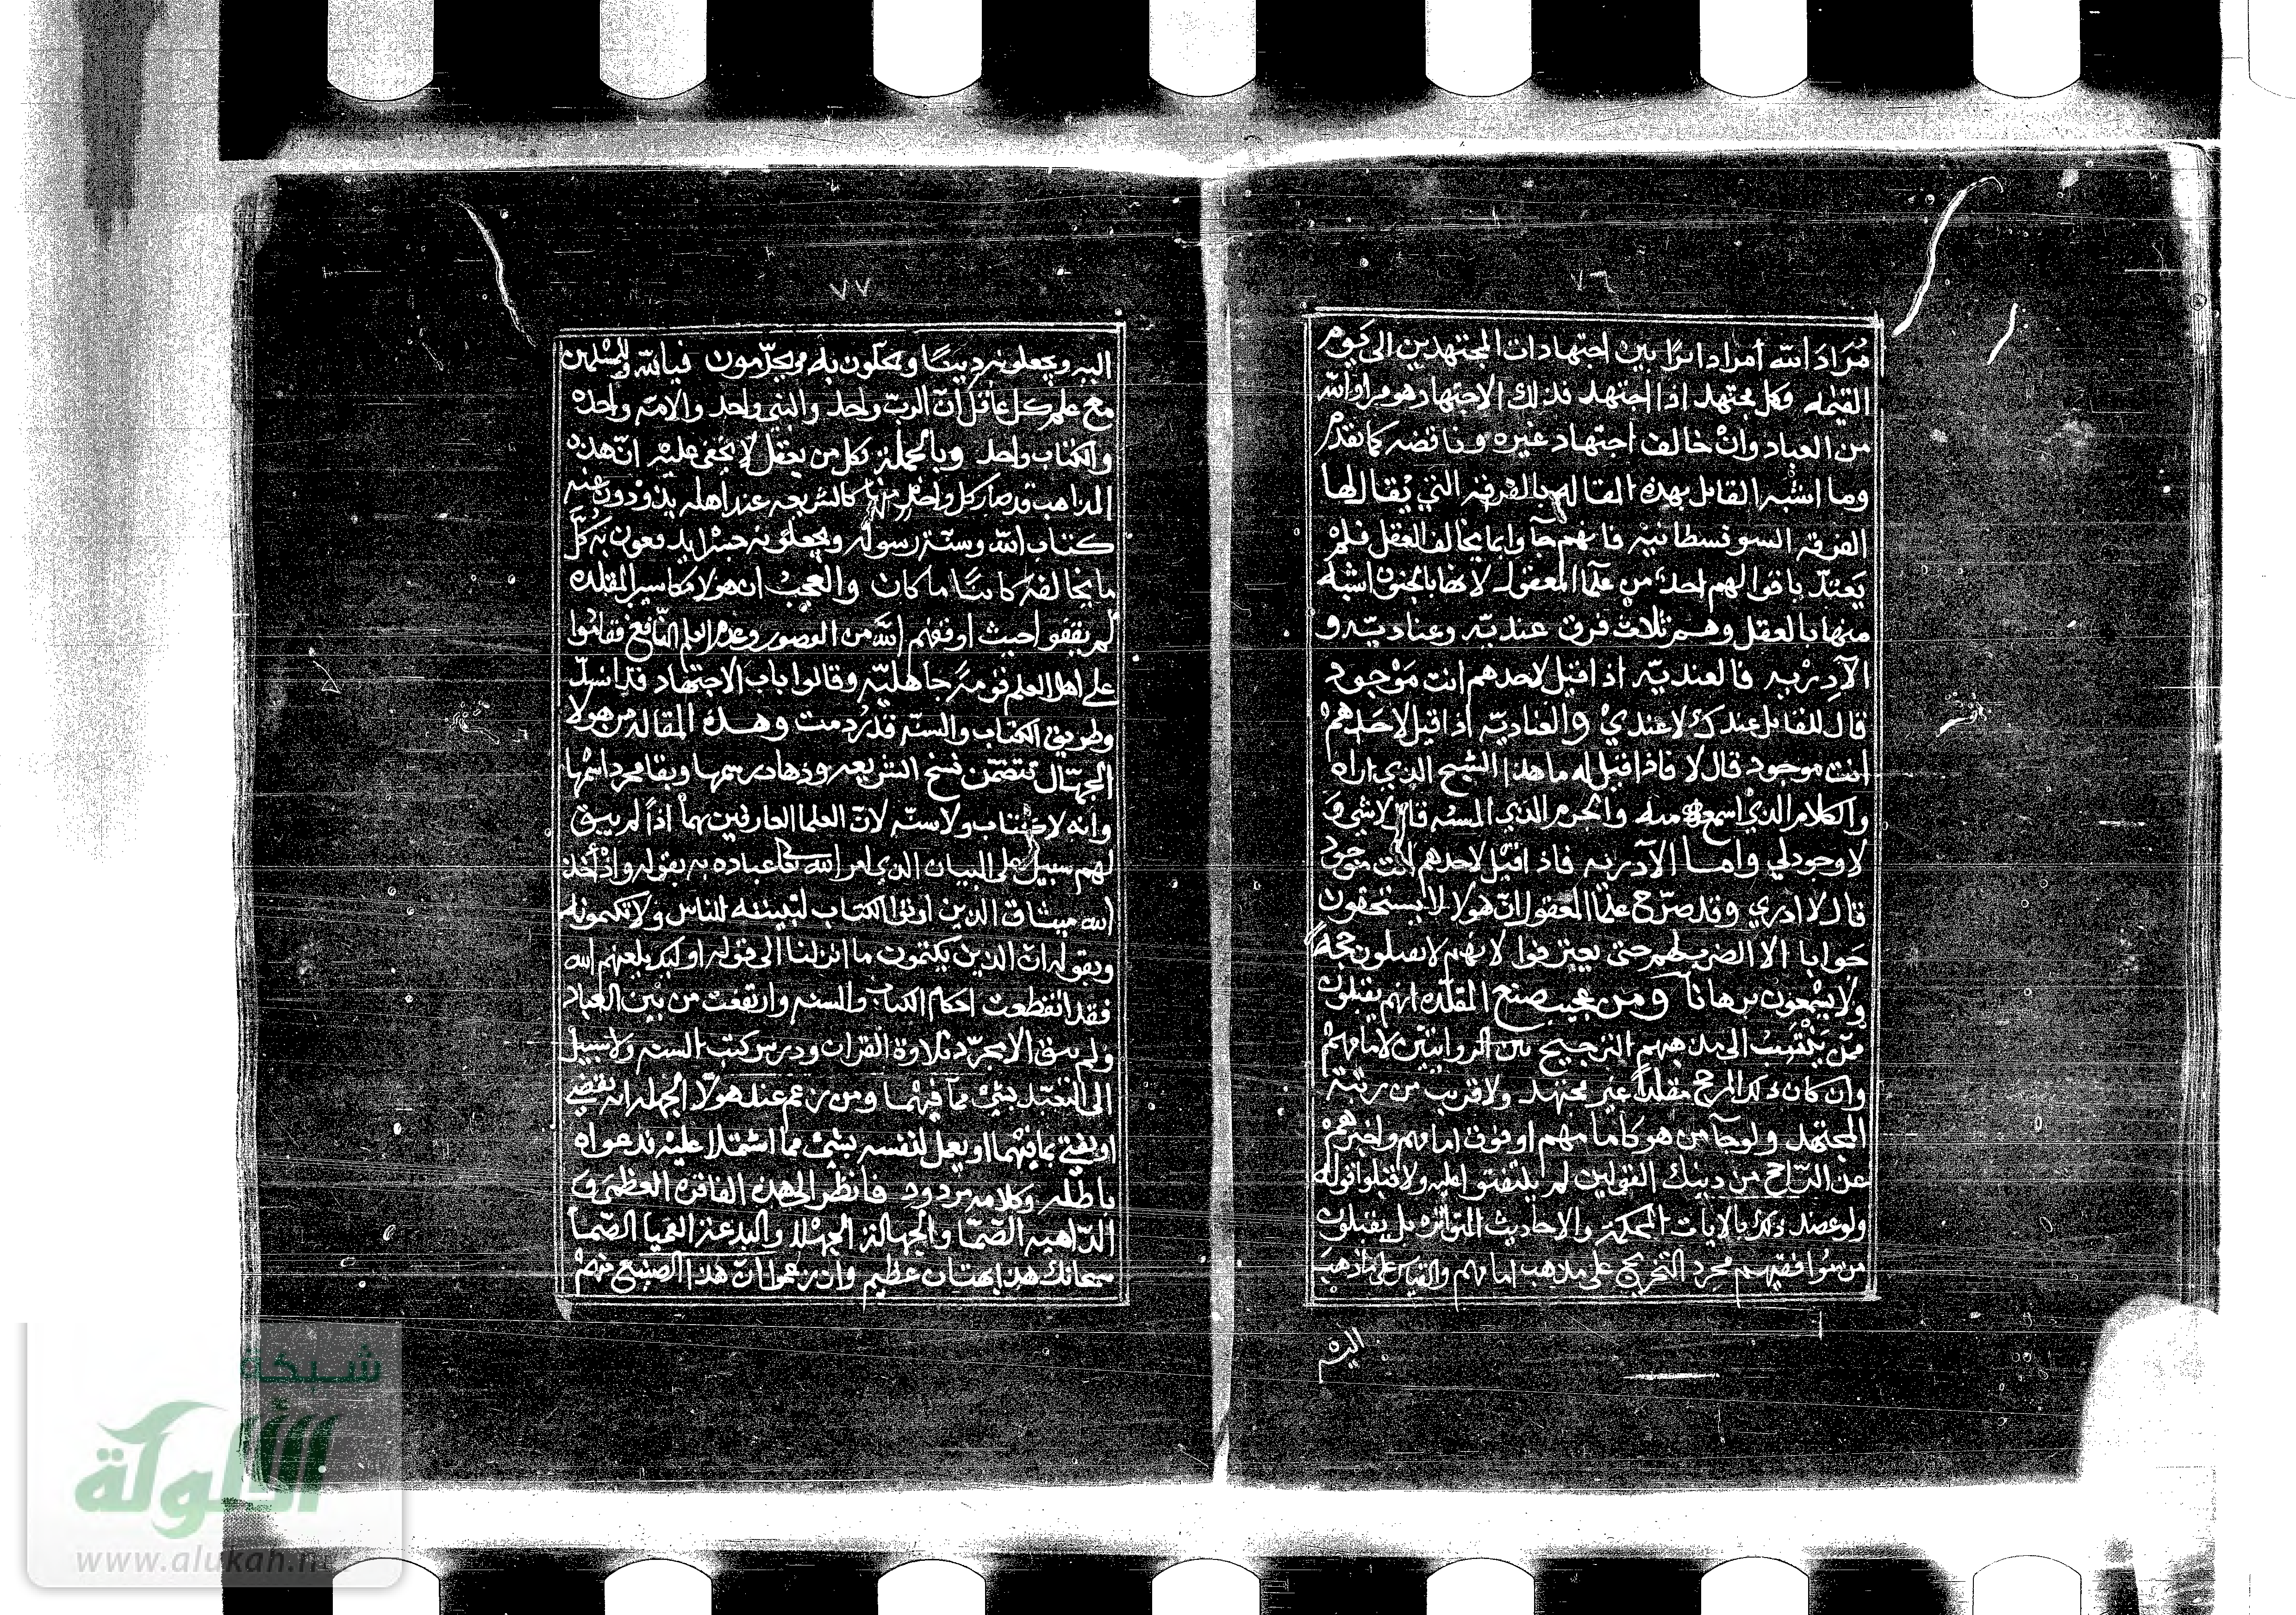 ٧٦
مُرَادَ الله أمرًا دايرًا بين اجتهادات المجتهدين الى يَوم
القيٰمه وكل مجتهد اذا اجتهد فذلك الاجتهاد هو مراد الله
من العباد وانْ خالف اجتهاد غيره وناقضه كما تقدم
وما اشبه القايل بهذه المقاله بالفرقه التي يُقال لها
الفرقه السوفسطانيه فانهم جآوا بما يخالف العقل فلم
يَعتدّ باقوالهم احد من علما المعقول لانها بالجنون اشبه
منها بالعقل وهم ثلاث فرق عنديّه وعناديّه و
الآدرْيه فالعنديّه اذا قيل لاحدهم انت مَوْجود
قال للقايل عندك لا عنديْ والعناديّه اذا قيل لاحَدهم
انت موجود قال لا فاذا قيل له ما هذا الشبح الذي اراه
والكلام الذيْ اسمعه منه والجرم الذي المسه قال لا شي و
لا وجود لي واما الآدريه فاذا قيْل لاحدهم انت موجود
قال لا ادري وقد صرّح علما المعقول انّ هولا لا يستحقون
جَوابا الا الضرب لهم حتى يعترفوا لانهم لا يقبلون حجه
ولا يسْمعون برهانا ومن عجيب صنع المقلده انهم يقبلون
ممّن يَنْتسِبُ الى مذهبهم الترجيح بين الروايتين لامامهم
وان كان ذلك المرجح مقلدًا غير مجتهد ولا قريب من رتبة
المجتهد ولو جآ من هو كامامهم او فوق امامهم واخبرهم
عن الرّاجح من ذينك القولين لم يلتفتوا اليه ولا قبلوا قوله
ولو عضد ذلك بالايات المحكمة والاحاديث المتواتره بل يقبلون
من موافقيهم مجرد التخريج على مذهب امامهم والقياس على ما ذهب
اليه
٧٧
اليه ويجعلونه دينًا ويحلّون به ويحرّمون فيالله وللمسْلمين
مع علم كل عاقل انّ الربّ واحد والنبي واحد والامّه واحده
والكتاب واحد وبالجملة فكل من يعقل لا يخفى عليْه انّ هذه
المذاهب قد صار كل واحد منها كالشريعه عند اهله يذودون عنه
كتاب الله وسنّة رسوله ويجعلونه جسْرا يدفعون به كلّ
ما يخالفه كائنًا ما كان والعجبُ ان هولاء مكاسير المقلده
لم يقفوا حيث اوقفهم الله من القصور وعدم العلم النّافع فقاموا
على اهل العلم قومةً جاهليّه وقالوا باب الاجتهاد قد انسدّ
وطريق الكتاب والسنّه قد رُدمت وهذه المقاله من هولا
الجهّال تتضمّن نسخ الشريعه وذهاب رسمها وبقا مجرد اسْمها
وانه لا كتاب ولا سنّه لانّ العلما العارفين بهما اذا لم يبق
لهم سبيل على البيان الذي امر الله تعالى عباده به بقوله واذْ أخذ
الله ميثاق الذين اوتوا الكتاب لتبيننه للناس ولا تكتمونه
وبقوله انّ الذين يكتمون ما انزلنا الى قوله اوليك يلعنهم الله
فقد انقطعت احكام الكتاب والسنه وارتفعت من بين العباد
ولم يبق الا مجرّد تلاوة القران ودرس كتب السنه ولا سبيل
الى التعبّد بشيْ ممّا فيْهما ومن زعم عند هولا الجهله انه يقضي
او يفتي بما فيْهما او يعمل لنفسه بشيْ مما اشتملا عليْه فدعواه
باطله وكلامه مردود فانظر الى هذه الفاقره العظمى و
الدّاهيه الصّمّا والجهالة الجهْلا والبدعة العميا الصّما
سبحانك هذا بهتان عظيم وان زعموا انّ هذا الصنيع منهم